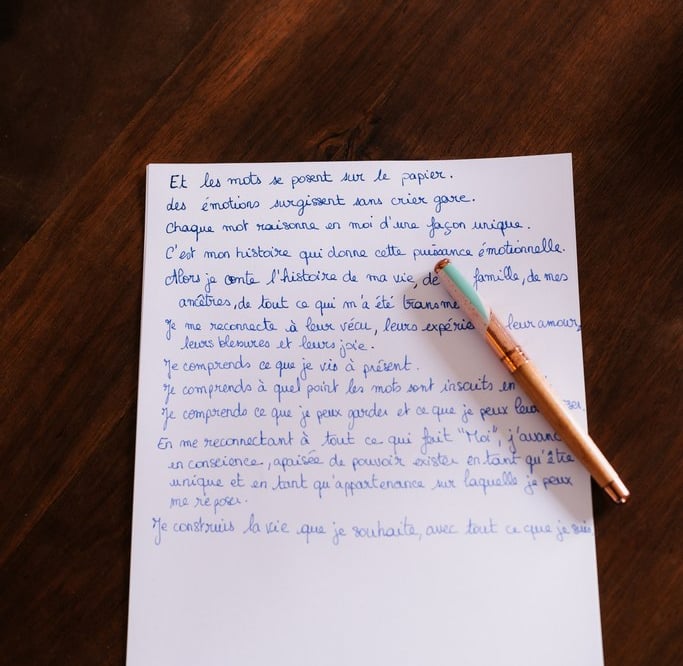 Et les mots se posent sur le papier.
des émotions surgissent sans crier gare.
Chaque mot raisonne en moi d'une façon unique.
C'est mon histoire qui donne cette puissance émotionnelle.
Alors je conte l'histoire de ma vie, de famille, de mes
ancêtres, de tout ce qui m'a été transme
Je me reconnecte à leur vécu, leurs expérie leur amour,
leurs blessures et leurs joie.
Je comprends ce que je vis à présent.
Je comprends à quel point les mots sont inscrits en
Je comprends ce que je peux garder et ce que je peux leur
En me reconnectant à tout ce qui fait "Moi", j'avance
en conscience, apaisée de pouvoir exister en tant qu'être
unique et en tant qu'appartenance sur laquelle je peux
me reposer.
Je construis la vie que je souhaite, avec tout ce que je suis